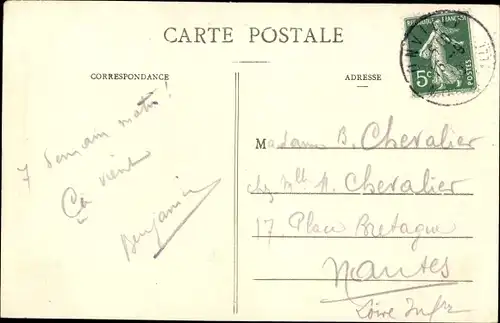 CARTE POSTALE
CORRESPONDANCE
ADRESSE
REPUBLIQUE FRANÇAISE
5c
POSTES
7 Demain matin!
Ça vient
Benjamin
Madame B. Chevalier
chez Mlle A. Chevalier
17 Place Bretagne
Nantes
Loire Infre